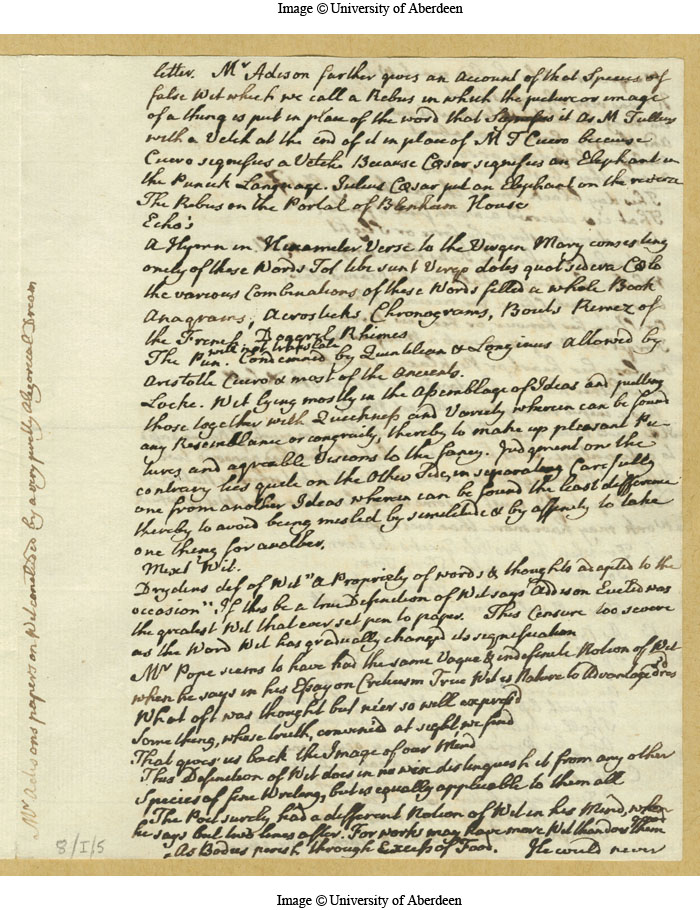 Image © University of Aberdeen
letter. Mr Adison farther gives an Account of that Species of
false Wit which we call a Rebus in which the picture or image
of a thing is put in place of the word that signifies it as M Tullius
with a Vetch at the end of it in place of M T Cicero because
Cicero signifies a Vetche Because Cæsar signifies an Elephant in
the Punick Language. Julius Cæsar put an Elephant on the reverse
The Rebus on the Portal of Blenheim House
Echo's
A Hymn in Hexameter Verse to the Virgin Mary consisting
onely of these Words Tot tibi sunt Virgo dotes quot sidera Cœlo
the various Combinations of these Words filled a whole Book
Anagrams, Acrosticks, Chronograms, Bouts Rimez of
the French Dogeril Rhimes
will not translate
The Pun. Condemned by Quintilian & Longinus allowed by
Aristotle Cicero & most of the Ancients.
Locke. Wit lying mostly in the Assemblage of Ideas and putting
those together with Quickness and Variety wherein can be found
any Resemblance or congruity, thereby to make up pleasant Pic-
tures and agreable Visions to the fancy. Judgment on the
contrary lies quite on the Other Side, in separating Carefully
one from another Ideas wherein can be found the least difference
thereby to avoid being misled by similitude & by affinity to take
one thing for another.
Mixt Wit.
Drydens def of Wit "a Propriety of words & thoughts adapted to the
occasion". If this be a true Definition of Wit says Adison Euclid was
the greatest Wit that ever set pen to paper. This Censure too severe
as the Word Wit has gradually changed its signification
Mr Pope seems to have had the same Vague & indefinite Notion of Wit
when he says in his Essay on Criticism True Wit is Nature to Advantage dress'd
What oft was thought but ne'er so well express'd
Something, whose truth, convinced at sight we find
That gives us back the Image of our Mind
This Definition of Wit does in no wise distinguish it from any other
Species of fine Writing, but is equally applicable to them all
The Poet surely had a different Notion of Wit in his Mind, when
he says but two lines after. For works may have more Wit than does them good
As Bodies perish through Excess of Food. He could never
Mr Adisons papers on Wit concluded by a very pretty Allegorical Dream
8/I/5
Image © University of Aberdeen